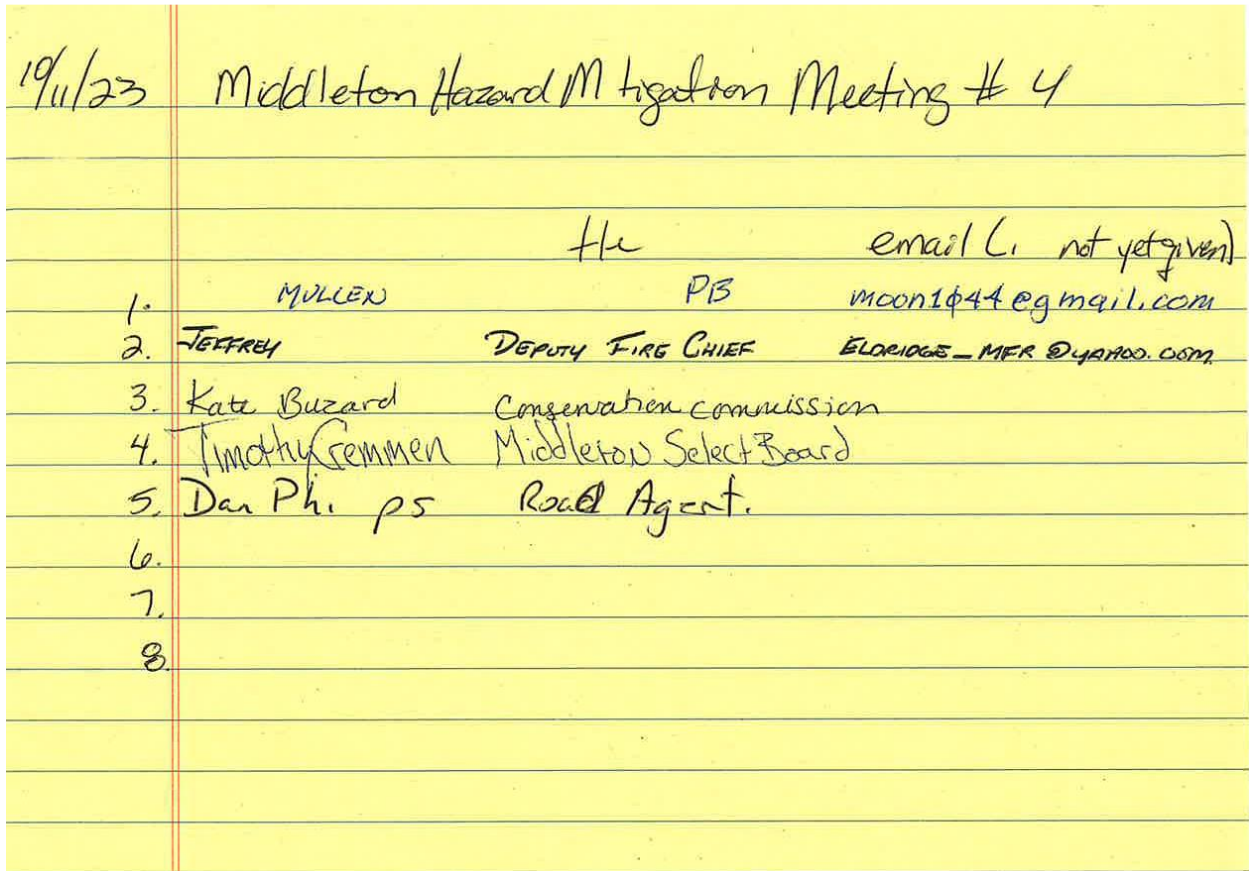 10/11/23 Middleton Hazard M tigation Meeting # 4
tle email (. not yet given)
1. MULLEN PB moon1044@gmail.com
2. JEFFREY DEPUTY FIRE CHIEF ELDRIDGE_MFR@YAHOO.COM
3. Kate Buzard Conservation commission
4. Timothy Cremmen Middleton Select Board
5. Dan Ph. ps Road Agent.
6.
7.
8.